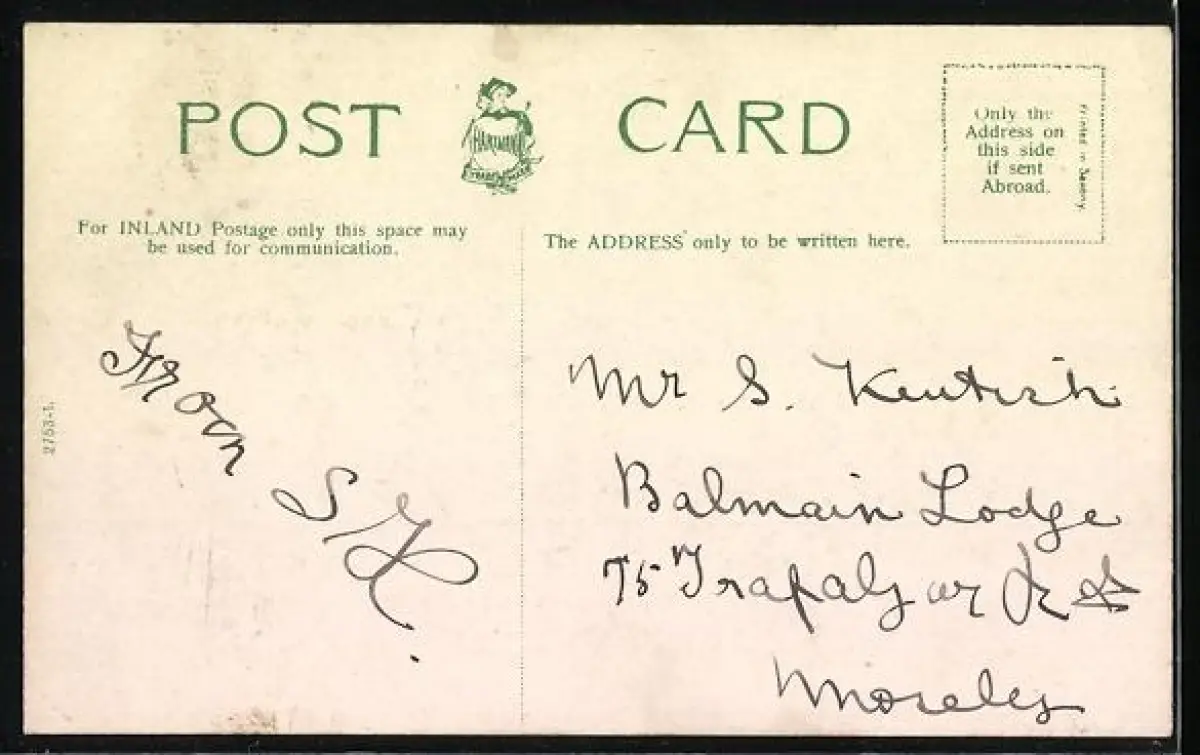 POST CARD
HARTMANN
TRADE MARK
Only the
Address on
this side
if sent
Abroad.
Printed in Saxony.
For INLAND Postage only this space may
be used for communication.
The ADDRESS only to be written here.
2753-1.
From
S K.
Mr S. Kentish
Balmain Lodge
75 Trafalgar Rd
Moseley